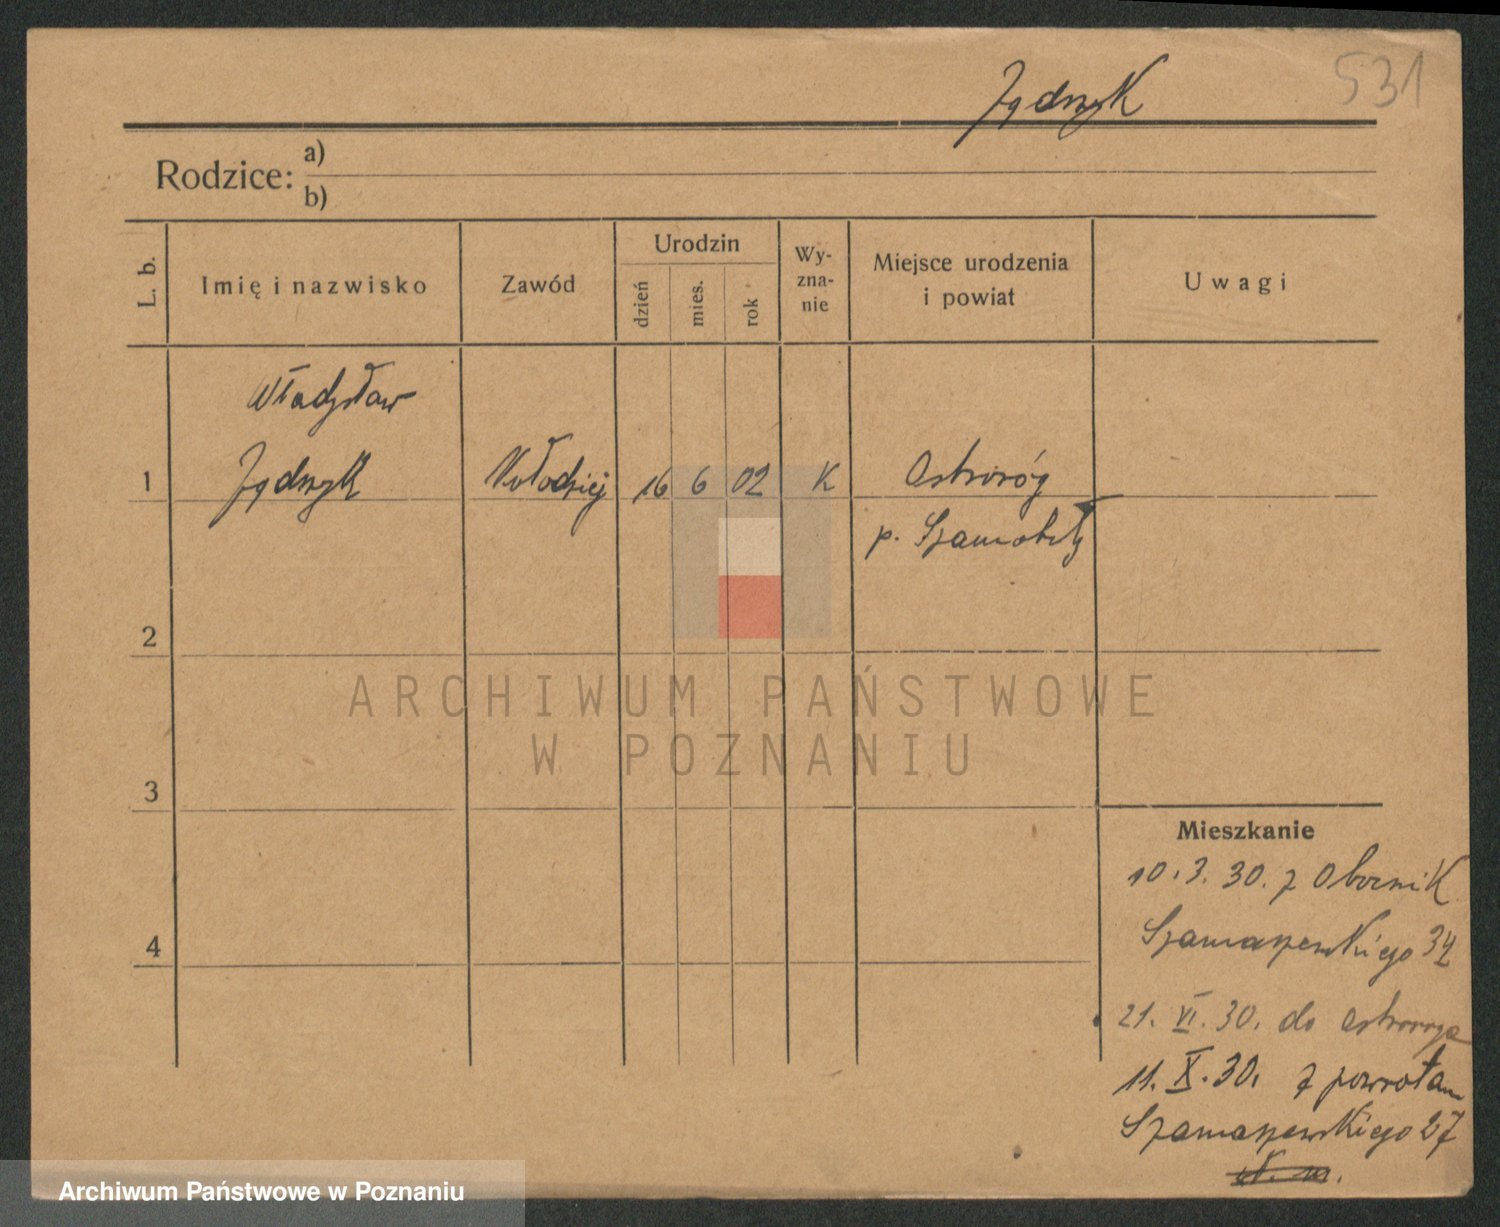 531
Jądrzyk
Rodzice:
a)
b)
L. b.
Imię i nazwisko
Zawód
Urodzin
dzień
mies.
rok
Wy-
zna-
nie
Miejsce urodzenia
i powiat
Uwagi
Władysław
1 Jądrzyk Kołodziej 16 6 02 K Ostroróg
p. Szamotuły
2
3
4
ARCHIWUM PAŃSTWOWE
W POZNANIU
Mieszkanie
10.3.30. z Obornik
Szamarzewskiego 34
21. VI. 30. do Ostroroga
11. X. 30. z powrotem
Szamarzewskiego 27
Archiwum Państwowe w Poznaniu